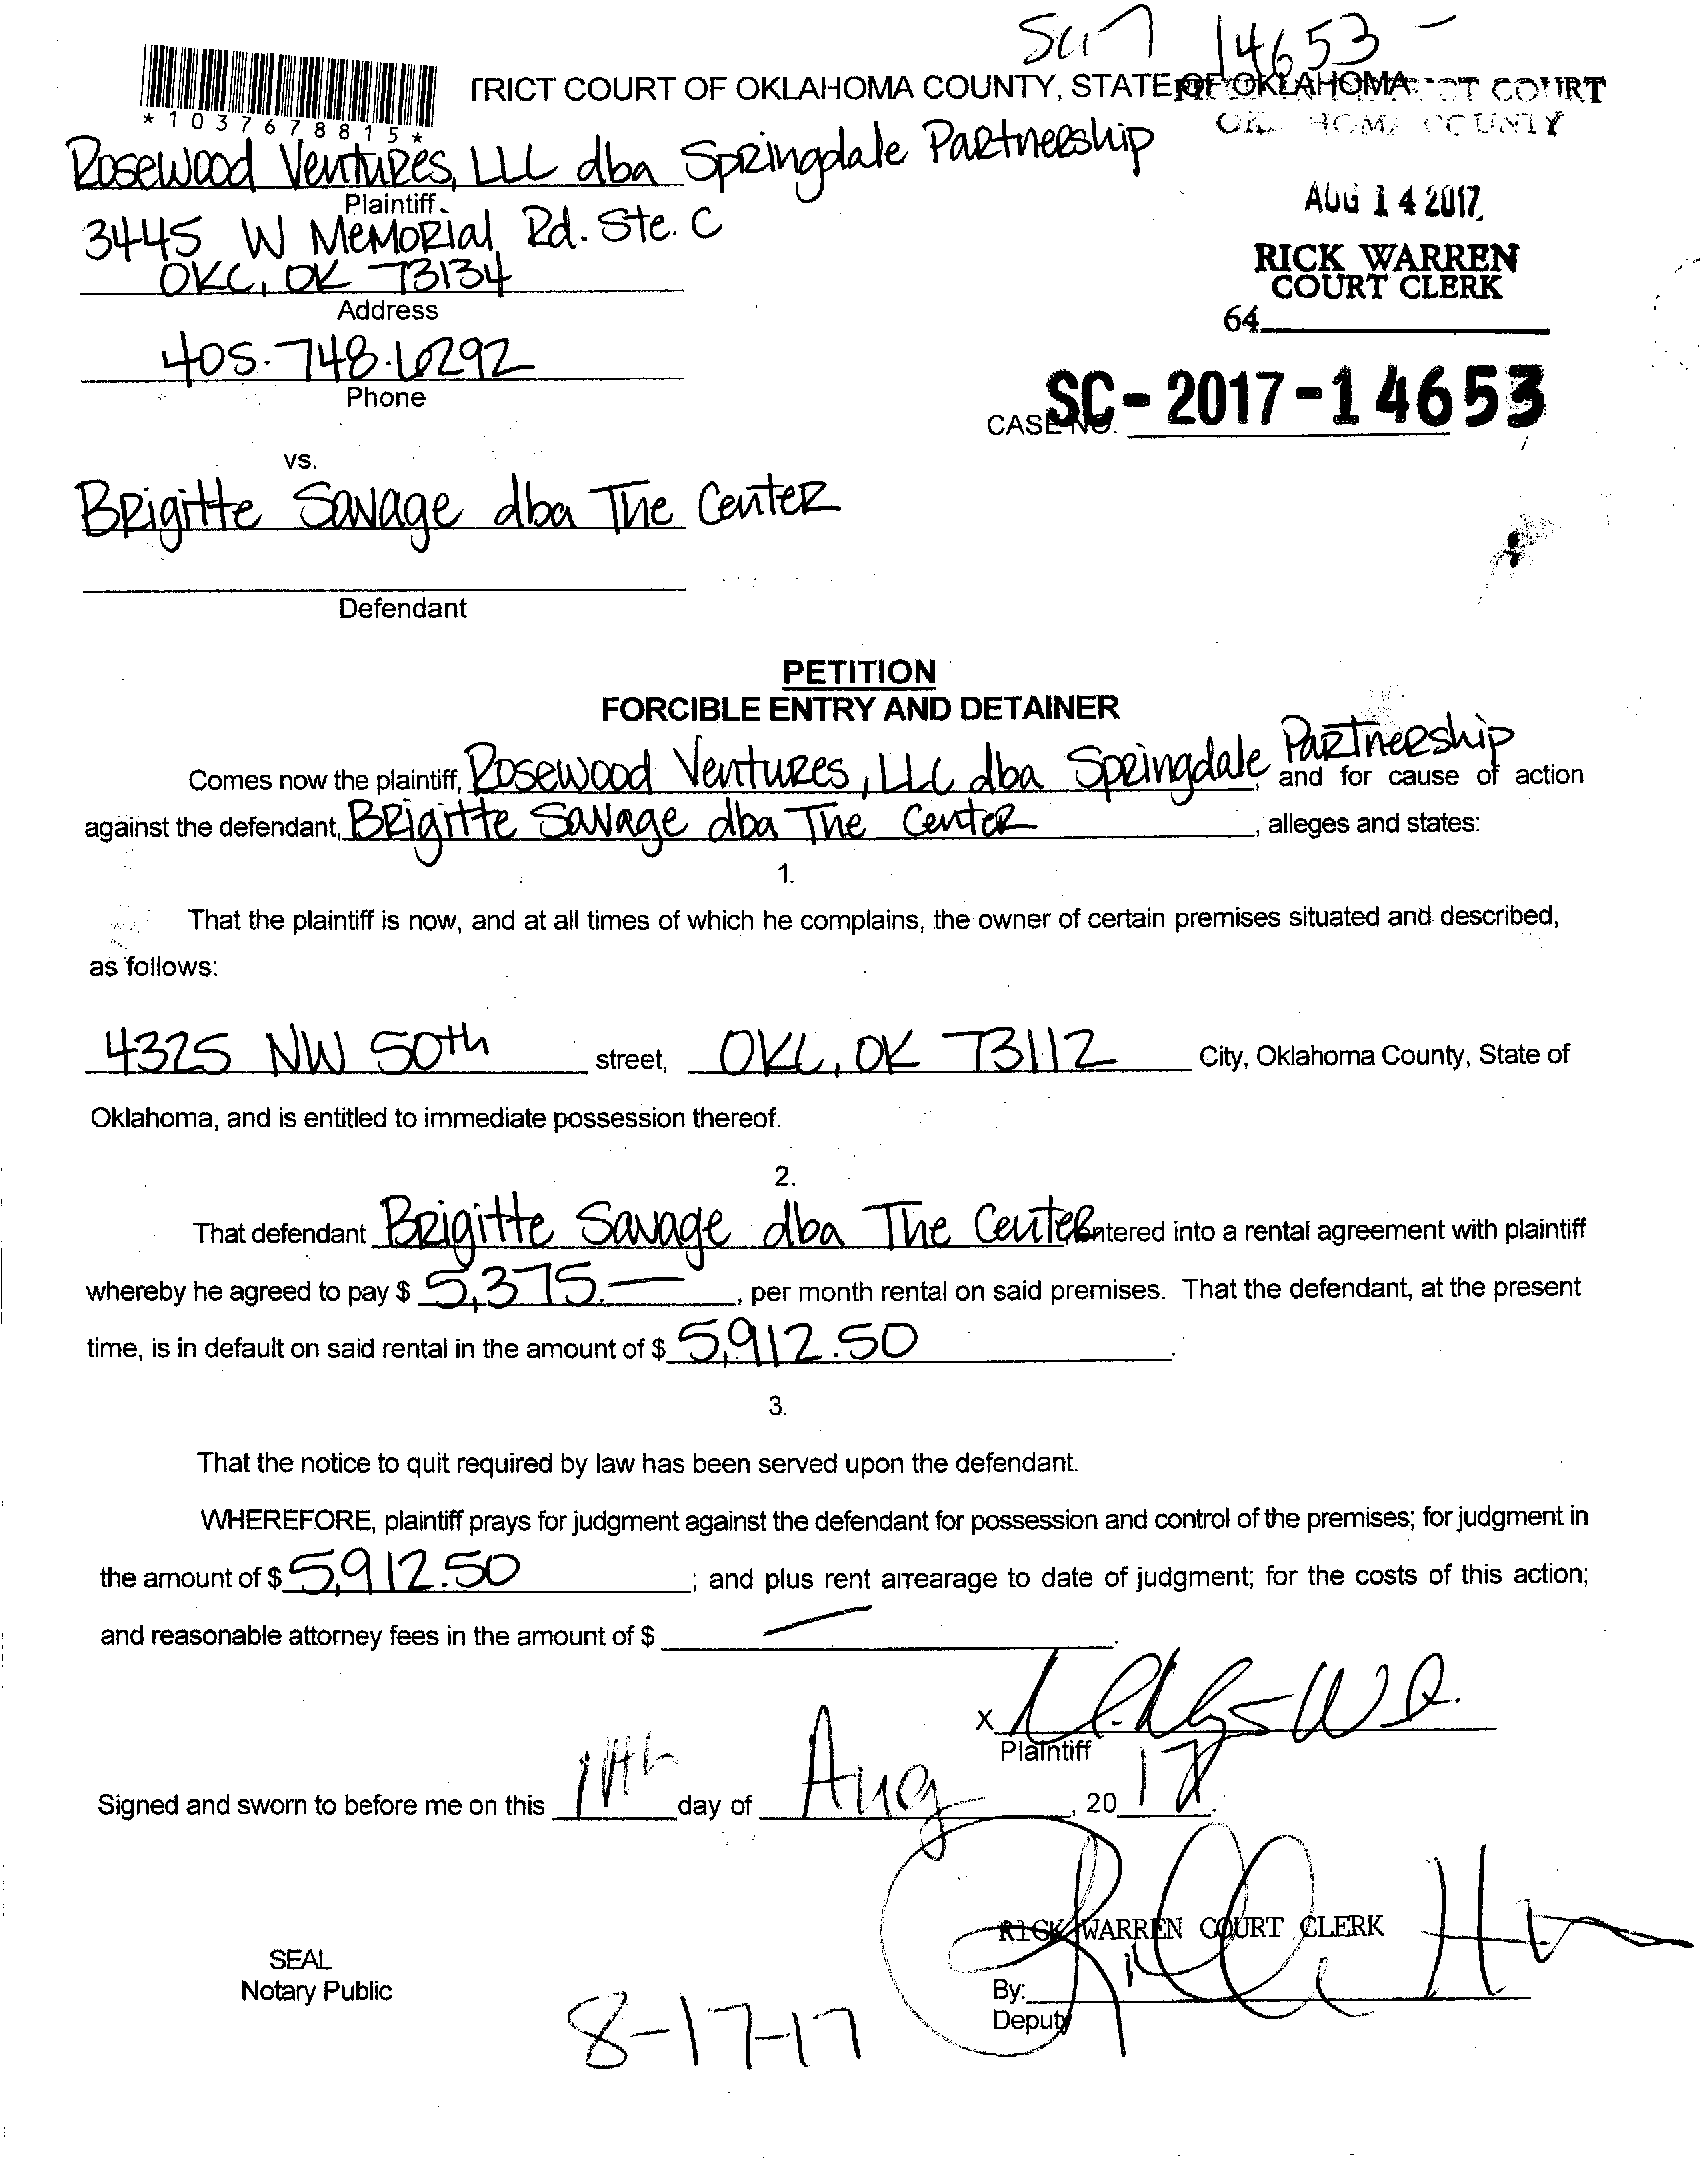 14653 -
TRICT COURT OF OKLAHOMA COUNTY, STATE OF OKLAHOMA
COURT
COUNTY
*1037678815*
Rosewood Ventures, LLC dba Springdale Partnership
Plaintiff
3445 W Memorial Rd. Ste. C
OKC, OK 73134
Address
AUG 14 2017
RICK WARREN
COURT CLERK
64
405.748.6292
Phone
CASE NO. SC-2017-14653
vs.
Brigitte Savage dba The Center
Defendant
PETITION
FORCIBLE ENTRY AND DETAINER
Comes now the plaintiff, Rosewood Ventures, LLC dba Springdale Partnership, and for cause of action
against the defendant, Brigitte Savage dba The Center, alleges and states:
1.
That the plaintiff is now, and at all times of which he complains, the owner of certain premises situated and described,
as follows:
4325 NW 50th street, OKC, OK 73112 City, Oklahoma County, State of
Oklahoma, and is entitled to immediate possession thereof.
2.
That defendant Brigitte Savage dba The Center entered into a rental agreement with plaintiff
whereby he agreed to pay $ 5,375.—, per month rental on said premises. That the defendant, at the present
time, is in default on said rental in the amount of $ 5,912.50.
3.
That the notice to quit required by law has been served upon the defendant.
WHEREFORE, plaintiff prays for judgment against the defendant for possession and control of the premises; for judgment in
the amount of $ 5,912.50; and plus rent arrearage to date of judgment; for the costs of this action;
and reasonable attorney fees in the amount of $ —.
X
Plaintiff
Signed and sworn to before me on this 14th day of Aug, 2017.
RICK WARREN COURT CLERK
SEAL
Notary Public
By:
Deputy
8-17-17